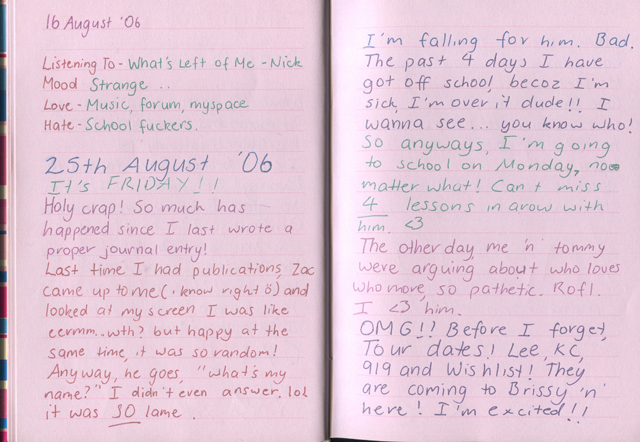 16 August '06
Listening To - What's Left of Me - Nick
Mood Strange ..
Love - Music, forum, myspace
Hate - School fuckers.
25th August '06
It's FRIDAY!!
Holy crap! So much has
happened since I last wrote a
proper journal entry!
Last time I had publications, Zac
came up to me (i know right ö) and
looked at my screen I was like
eermm..wth? but happy at the
same time, it was so random!
Anyway, he goes, "what's my
name?" I didn't even answer. lol
it was SO lame.
I'm falling for him. Bad.
The past 4 days I have
got off school becoz I'm
sick, I'm over it dude!! I
wanna see... you know who!
So anyways, I'm going
to school on Monday, no
matter what! Can't miss
4 lessons in arow with
him. <3
The other day, me 'n' tommy
were arguing about who loves
who more, so pathetic. Rofl.
I <3 him.
OMG!! Before I forget,
Tour dates! Lee, KC,
919 and Wishlist! They
are coming to Brissy 'n'
here! I'm excited!!